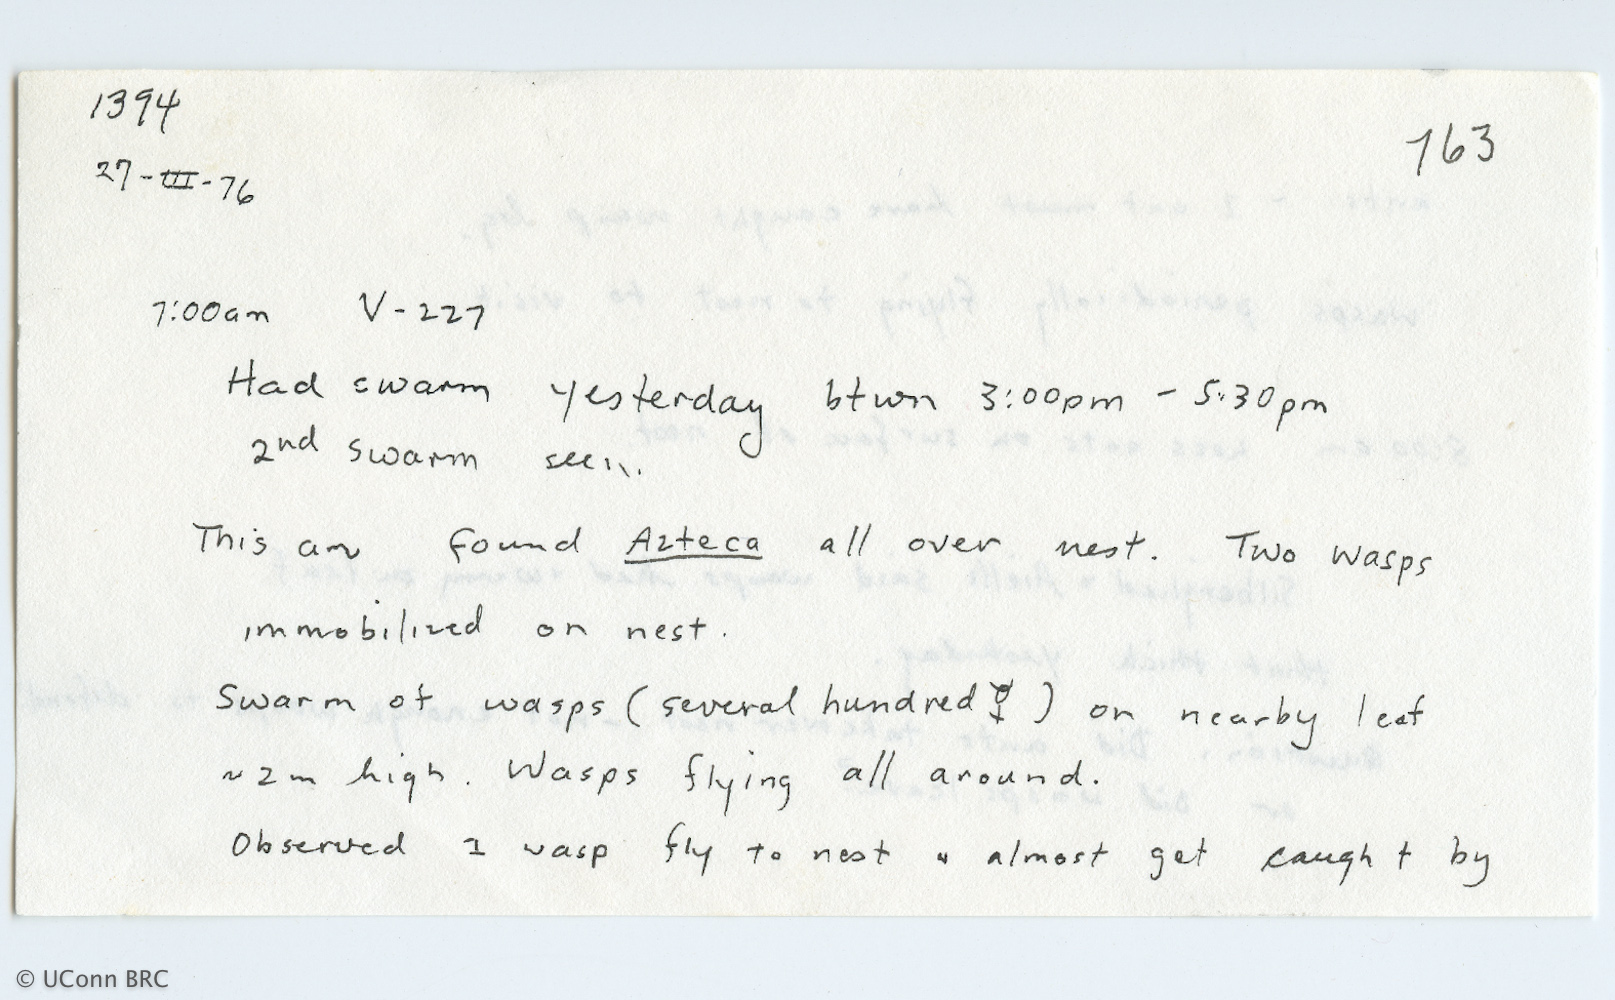 1394
763
27-III-76
7:00am V-227
Had swarm yesterday btwn 3:00pm - 5:30pm
2nd swarm seen.
This am found Azteca all over nest. Two wasps
immobilized on nest.
Swarm of wasps (several hundred ☿) on nearby leaf
~2m high. Wasps flying all around.
Observed 1 wasp fly to nest & almost get caught by
© UConn BRC